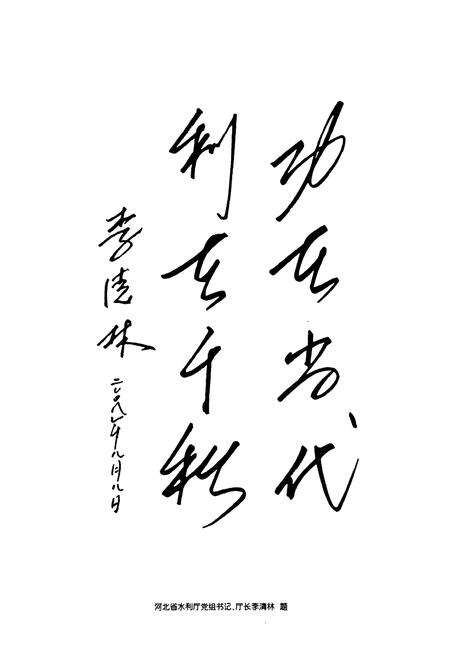 功在当代
利在千秋
李清林
二〇〇八年八月八日
河北省水利厅党组书记、厅长李清林 题